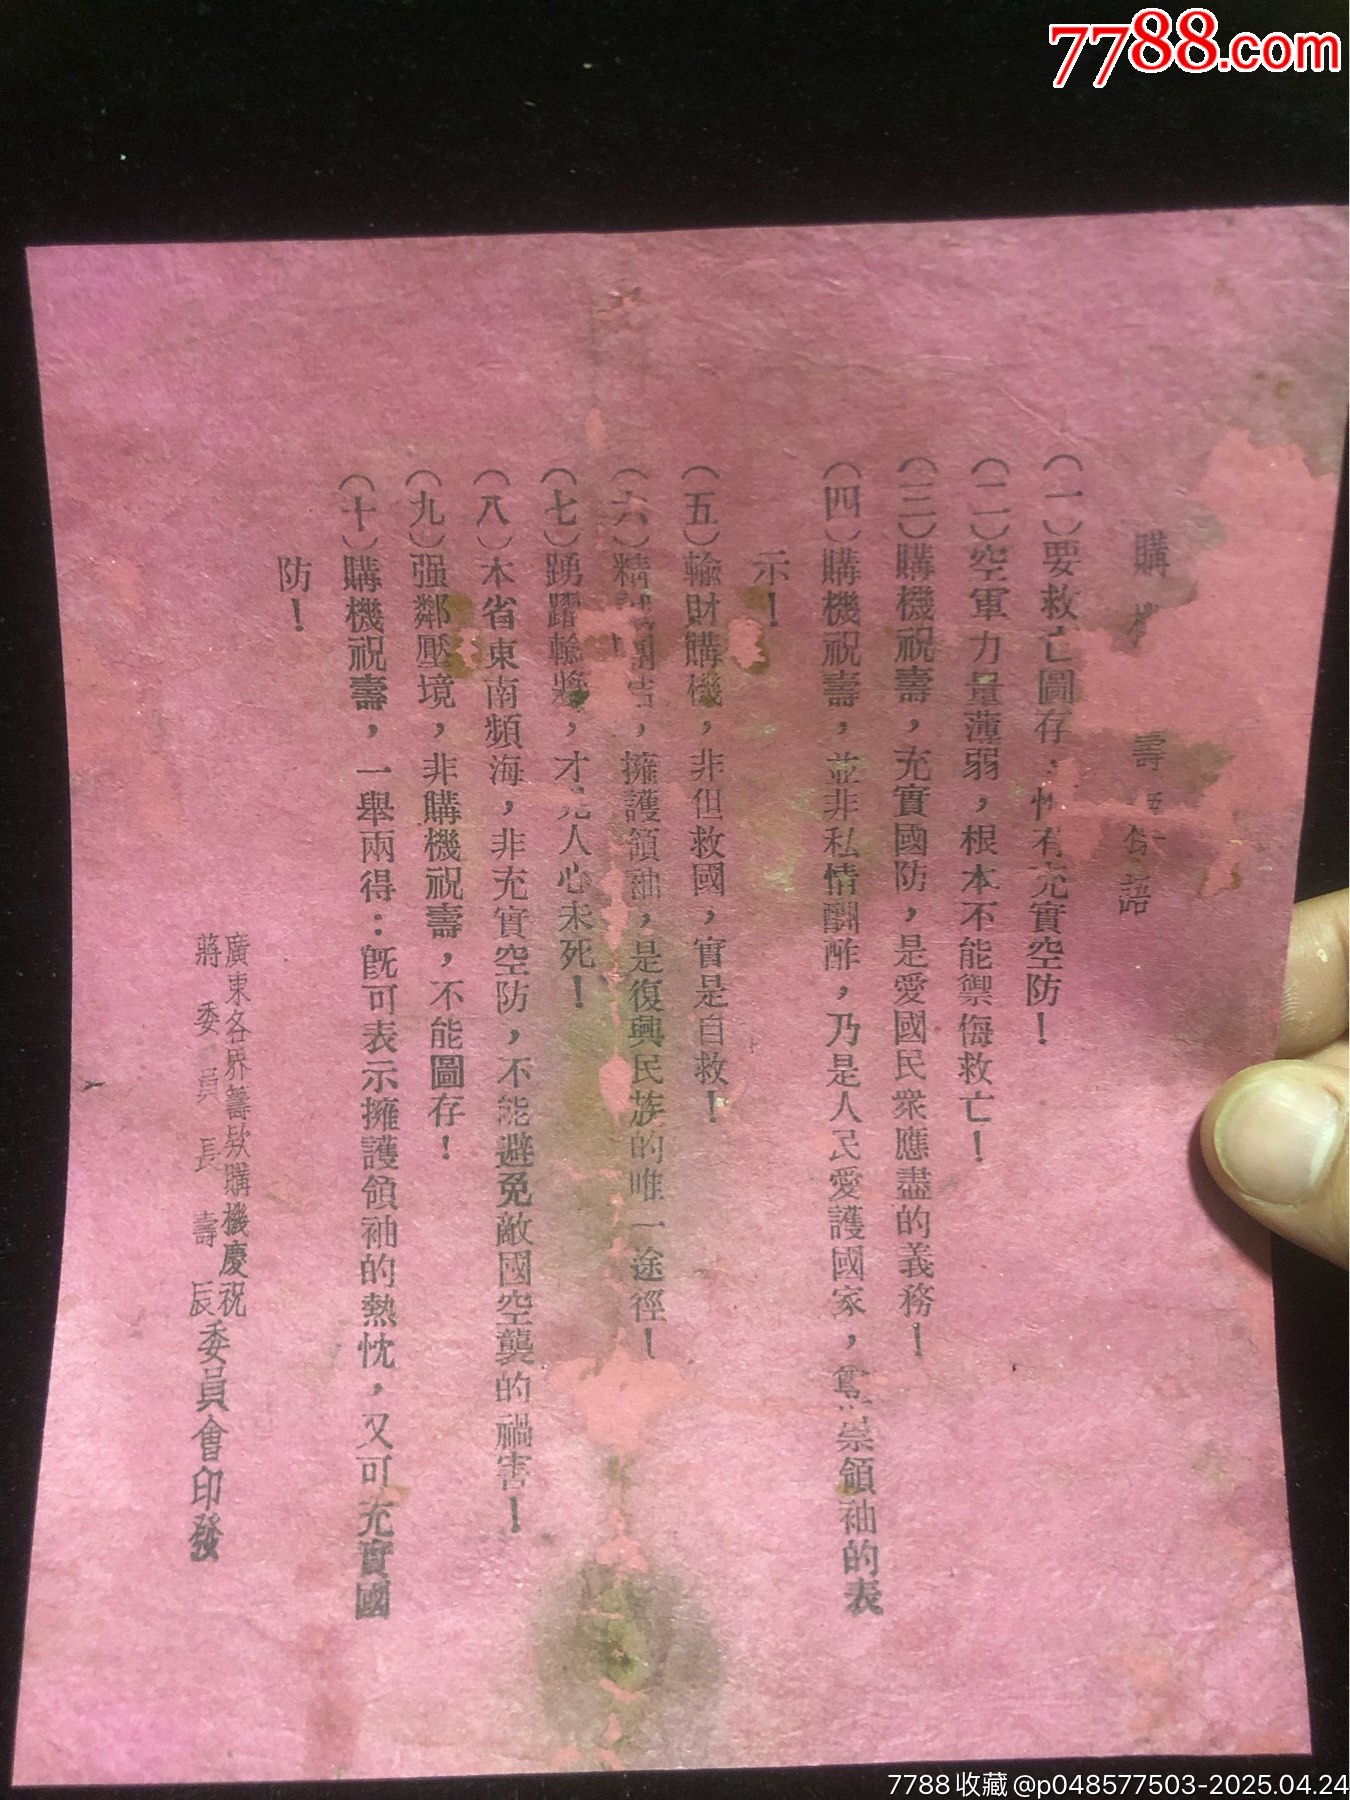 7788.com
購 壽 語
(一)要救亡圖存,惟有充實空防!
(二)空軍力量薄弱,根本不能禦侮救亡!
(三)購機祝壽,充實國防,是愛國民衆應盡的義務!
(四)購機祝壽,並非私情酬酢,乃是人民愛護國家,崇領袖的表
示!
(五)輸財購機,非但救國,實是自救!
(六)精,擁護領袖,是復興民族的唯一途徑!
(七)踴躍輸將,才見人心未死!
(八)本省東南頻海,非充實空防,不能避免敵國空襲的禍害!
(九)强鄰壓境,非購機祝壽,不能圖存!
(十)購機祝壽,一舉兩得:旣可表示擁護領袖的熱忱,又可充實國
防!
廣東各界籌欵購機慶祝
蔣委員長壽辰委員會印發
7788收藏@p048577503-2025.04.24